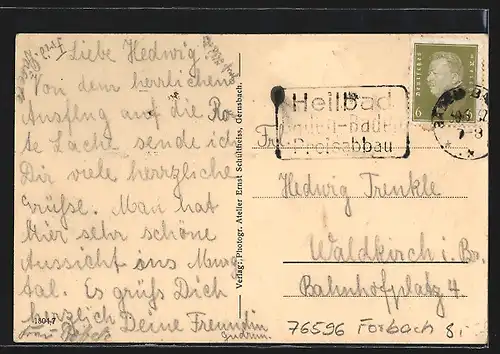 Liebe Hedwig
Von dem herrlichen
Ausflug auf die Ro-
te Lache sende ich
Dir viele herzliche
Grüsse. Man hat
hier sehr schöne
Aussicht ins Murg-
tal. Es grüß Dich
herzlich Deine Freundin
Gudrun.
1804-7
Verlag: Photogr. Atelier Ernst Schultheiss, Gernsbach.
Heilbad
Baden-Baden
Preisabbau
DEUTSCHES REICH
6 6
Frl.
Hedwig Trenkle
Waldkirch i. Br.
Bahnhofplatz 4.
76596 Forbach